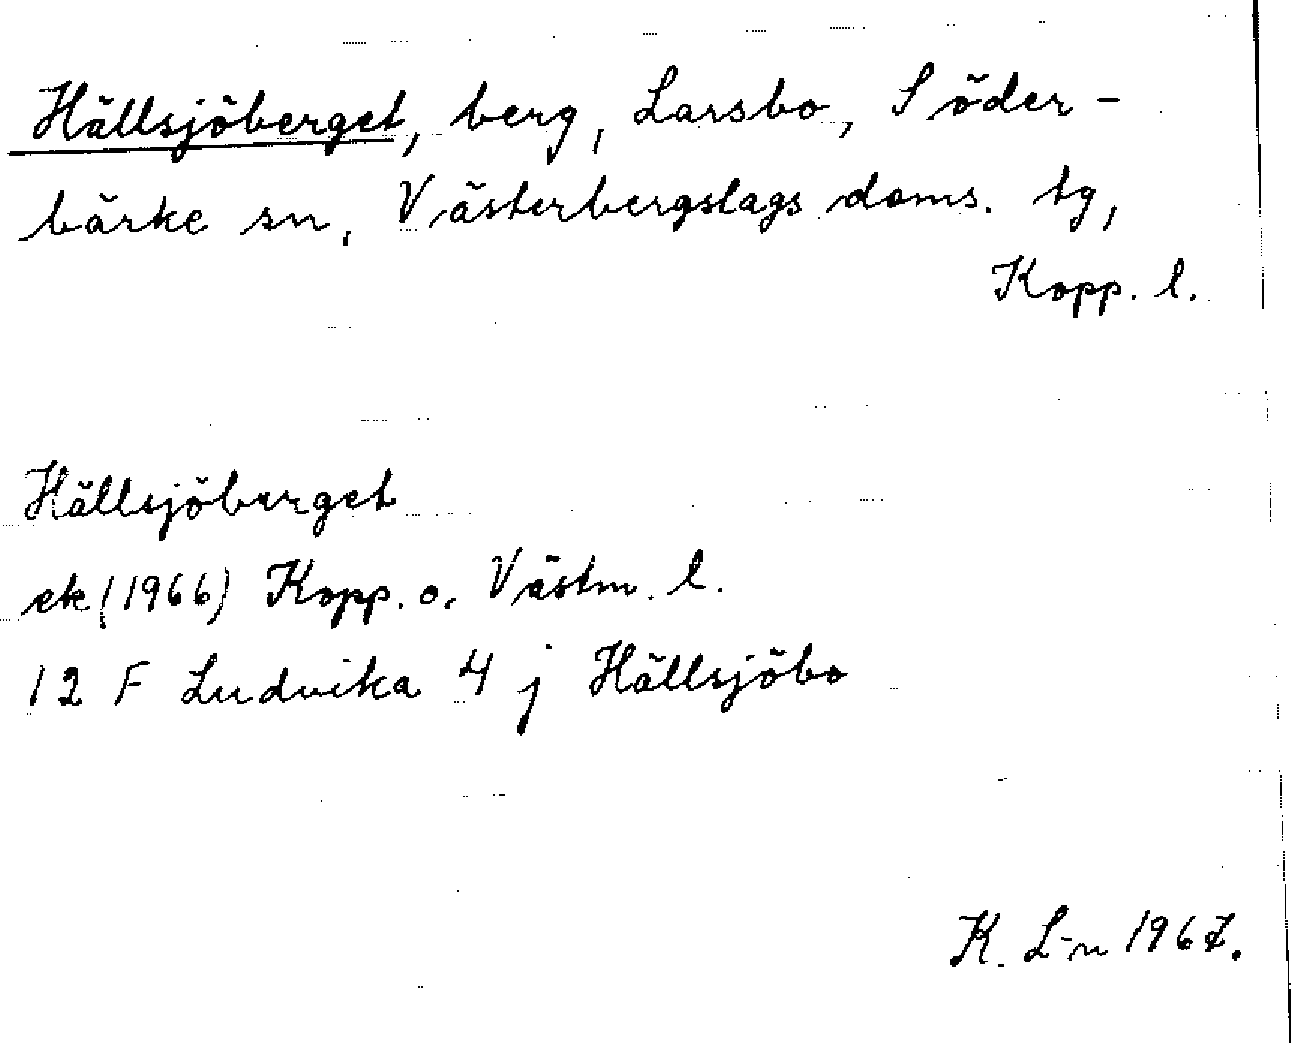 Hällsjöberget, berg, Larsbo, Söder-
bärke sn, Västerbergslags doms. tg,
Kopp. l.
Hällsjöberget
ek (1966) Kopp. o. Västm. l.
12 F Ludvika 4 j Hällsjöbo
K. L-n 1967.